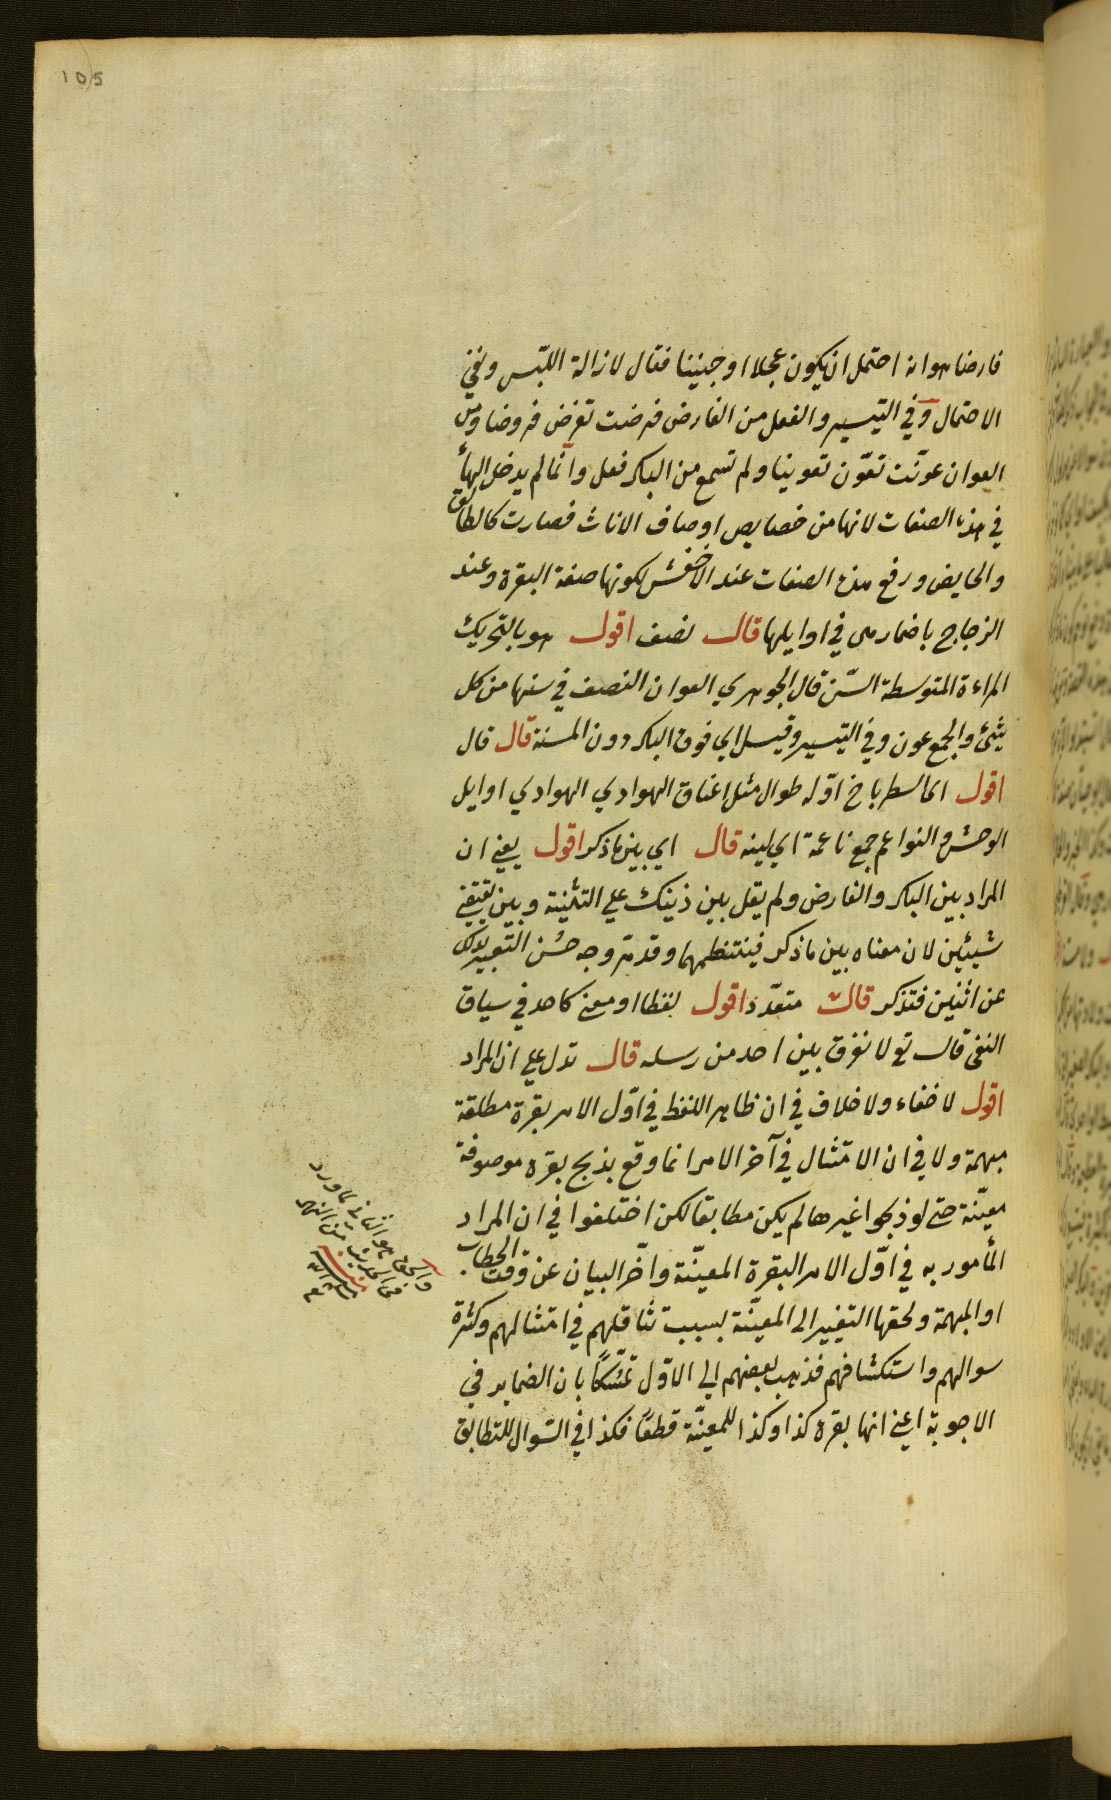 105
فارضا هو انه احتمل ان يكون عجلا او جنينا فقال لازالة اللبس ونفي
الاحتمال وفي التيسير والفعل من الفارض فرضت تفرض فروضا ومن
العوان عوّنت تعوّن تعوينا ولم تسمع من البكر فعل وانما لم يدخل الهأ
في هذه الصفات لانها من خصايص اوصاف الاناث فصارت كالطالق
والحايض ورفع هذه الصفات عند الاخفش لكونها صفة البقرة وعند
الزجاج باضمار هى في اوايلها قال نصف اقول هو بالتحريك
المراءة المتوسطة السّن قال الجوهري العوان النصف في سنها من كل
شئ والجمع عون وفي التيسير وقيل اي فوق البكر دون المسنة قال قال
اقول اوله طوال مثل اعناق الهوادي الهوادي اوايل
الوحش والنواعم جمع ناعمة اي لينه قال اي بين ما ذكر اقول يعني ان
المراد بين البكر والفارض ولم يقل بين ذينك علي التثنية وبين تقتضي
شيئين لان معناه بين ما ذكر فينتظمهما وقد مرّ وجه حسُن التعبير بذلك
عن اثنين فتذكر قال متعدّد اقول لفظا او معنى كاحد في سياق
النفى قال تع لا نفرق بين احد من رسله قال تدل علي ان المراد
اقول لا خفاء ولا خلاف في ان ظاهر اللفظ في اوّل الامر بقرة مطلقة
مبهمة ولا في ان الامتثال في آخر الامر انما وقع بذبح بقرة موصوفة
معيّنة حتى لو ذبحوا غيرها لم يكن مطابقا لكن اختلفوا في ان المراد
المأمور به في اوّل الامر البقرة المعينّة واخّر البيان عن وقت الخطاب
او المبهمة ولحقها التغيير الى المعينّة بسبب تثاقلهم في امتثالهم وكثرة
سوالهم واستكشافهم فذهب بعضهم الى الاوّل تمسّكاً بان الضماير في
الاجوبة اعني انها بقرة كذا وكذا للمعينّة قطعًا فكذا في السّوال للتطابق
والحق هو الثاني لما ورد
في الحديث من